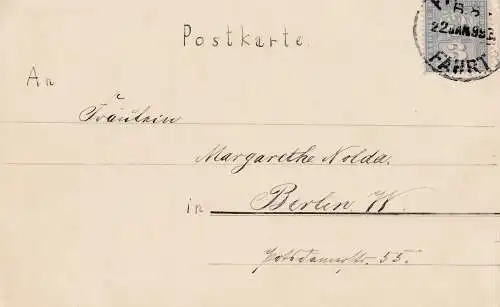 Postkarte.
22 JAN 99
3
FAHRT
An
Fräulein
Margarethe Nolda.
in Berlin. W.
Potsdamerstr. 55.